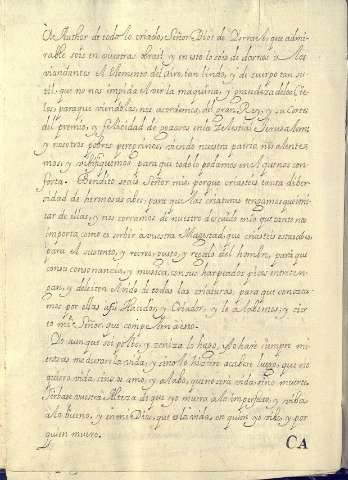 Author de todo lo criado, Señor Dios de
rable sois en vuestras obras! y en esto lo sois de darnos a los
viandantes el Elemento del aire, tan lindo, y de cuerpo tan su-
til, que no nos impida el ver la maquina, y grandeza de los Cie-
los, para que viendolos, nos acordemos, del gran Rey, y su Corte
del premio, y felicidad de gozaros en la Celestial Jerusalem;
y nosotros pobres peregrinos, viendo nuestra patria nos alente-
mos, y para que todo lo podamos en Aquel que nos con-
forta. Bendito seais Señor mio porque criasteis tanta diber-
sidad de hermosas abes, para que las criaturas tengamos que imi-
tar de ellas, y nos corramos de nuestro descuido en lo que tanto nos
importa, como es serbir a vuestra Magestad, que criasteis estas abes
para el sustento, y recreo, gusto, y regalo del hombre, para que
con su consonancia, y musica, con sus harpados picos
pan, y deleiten el oido de todas las criaturas, para que conozca-
mos por ellas a su Hacedor, y Criador, y le alabemos, y cier-
to mi Señor, que
Yo aunque soi polvo, y ceniza lo hago, y lo haré siempre mi-
entras me durare la vida, y si no lo hiciere acabese luego, que no
quiero vida, sino os amo, y alabo, que no será vida, sino muerte.
Sirbase vuestra Alteza de que yo muera a lo imperfecto, y viba
a lo bueno, y en mi Dios, que es la vida, en quien yo vibo, y por
quien muero.
CA